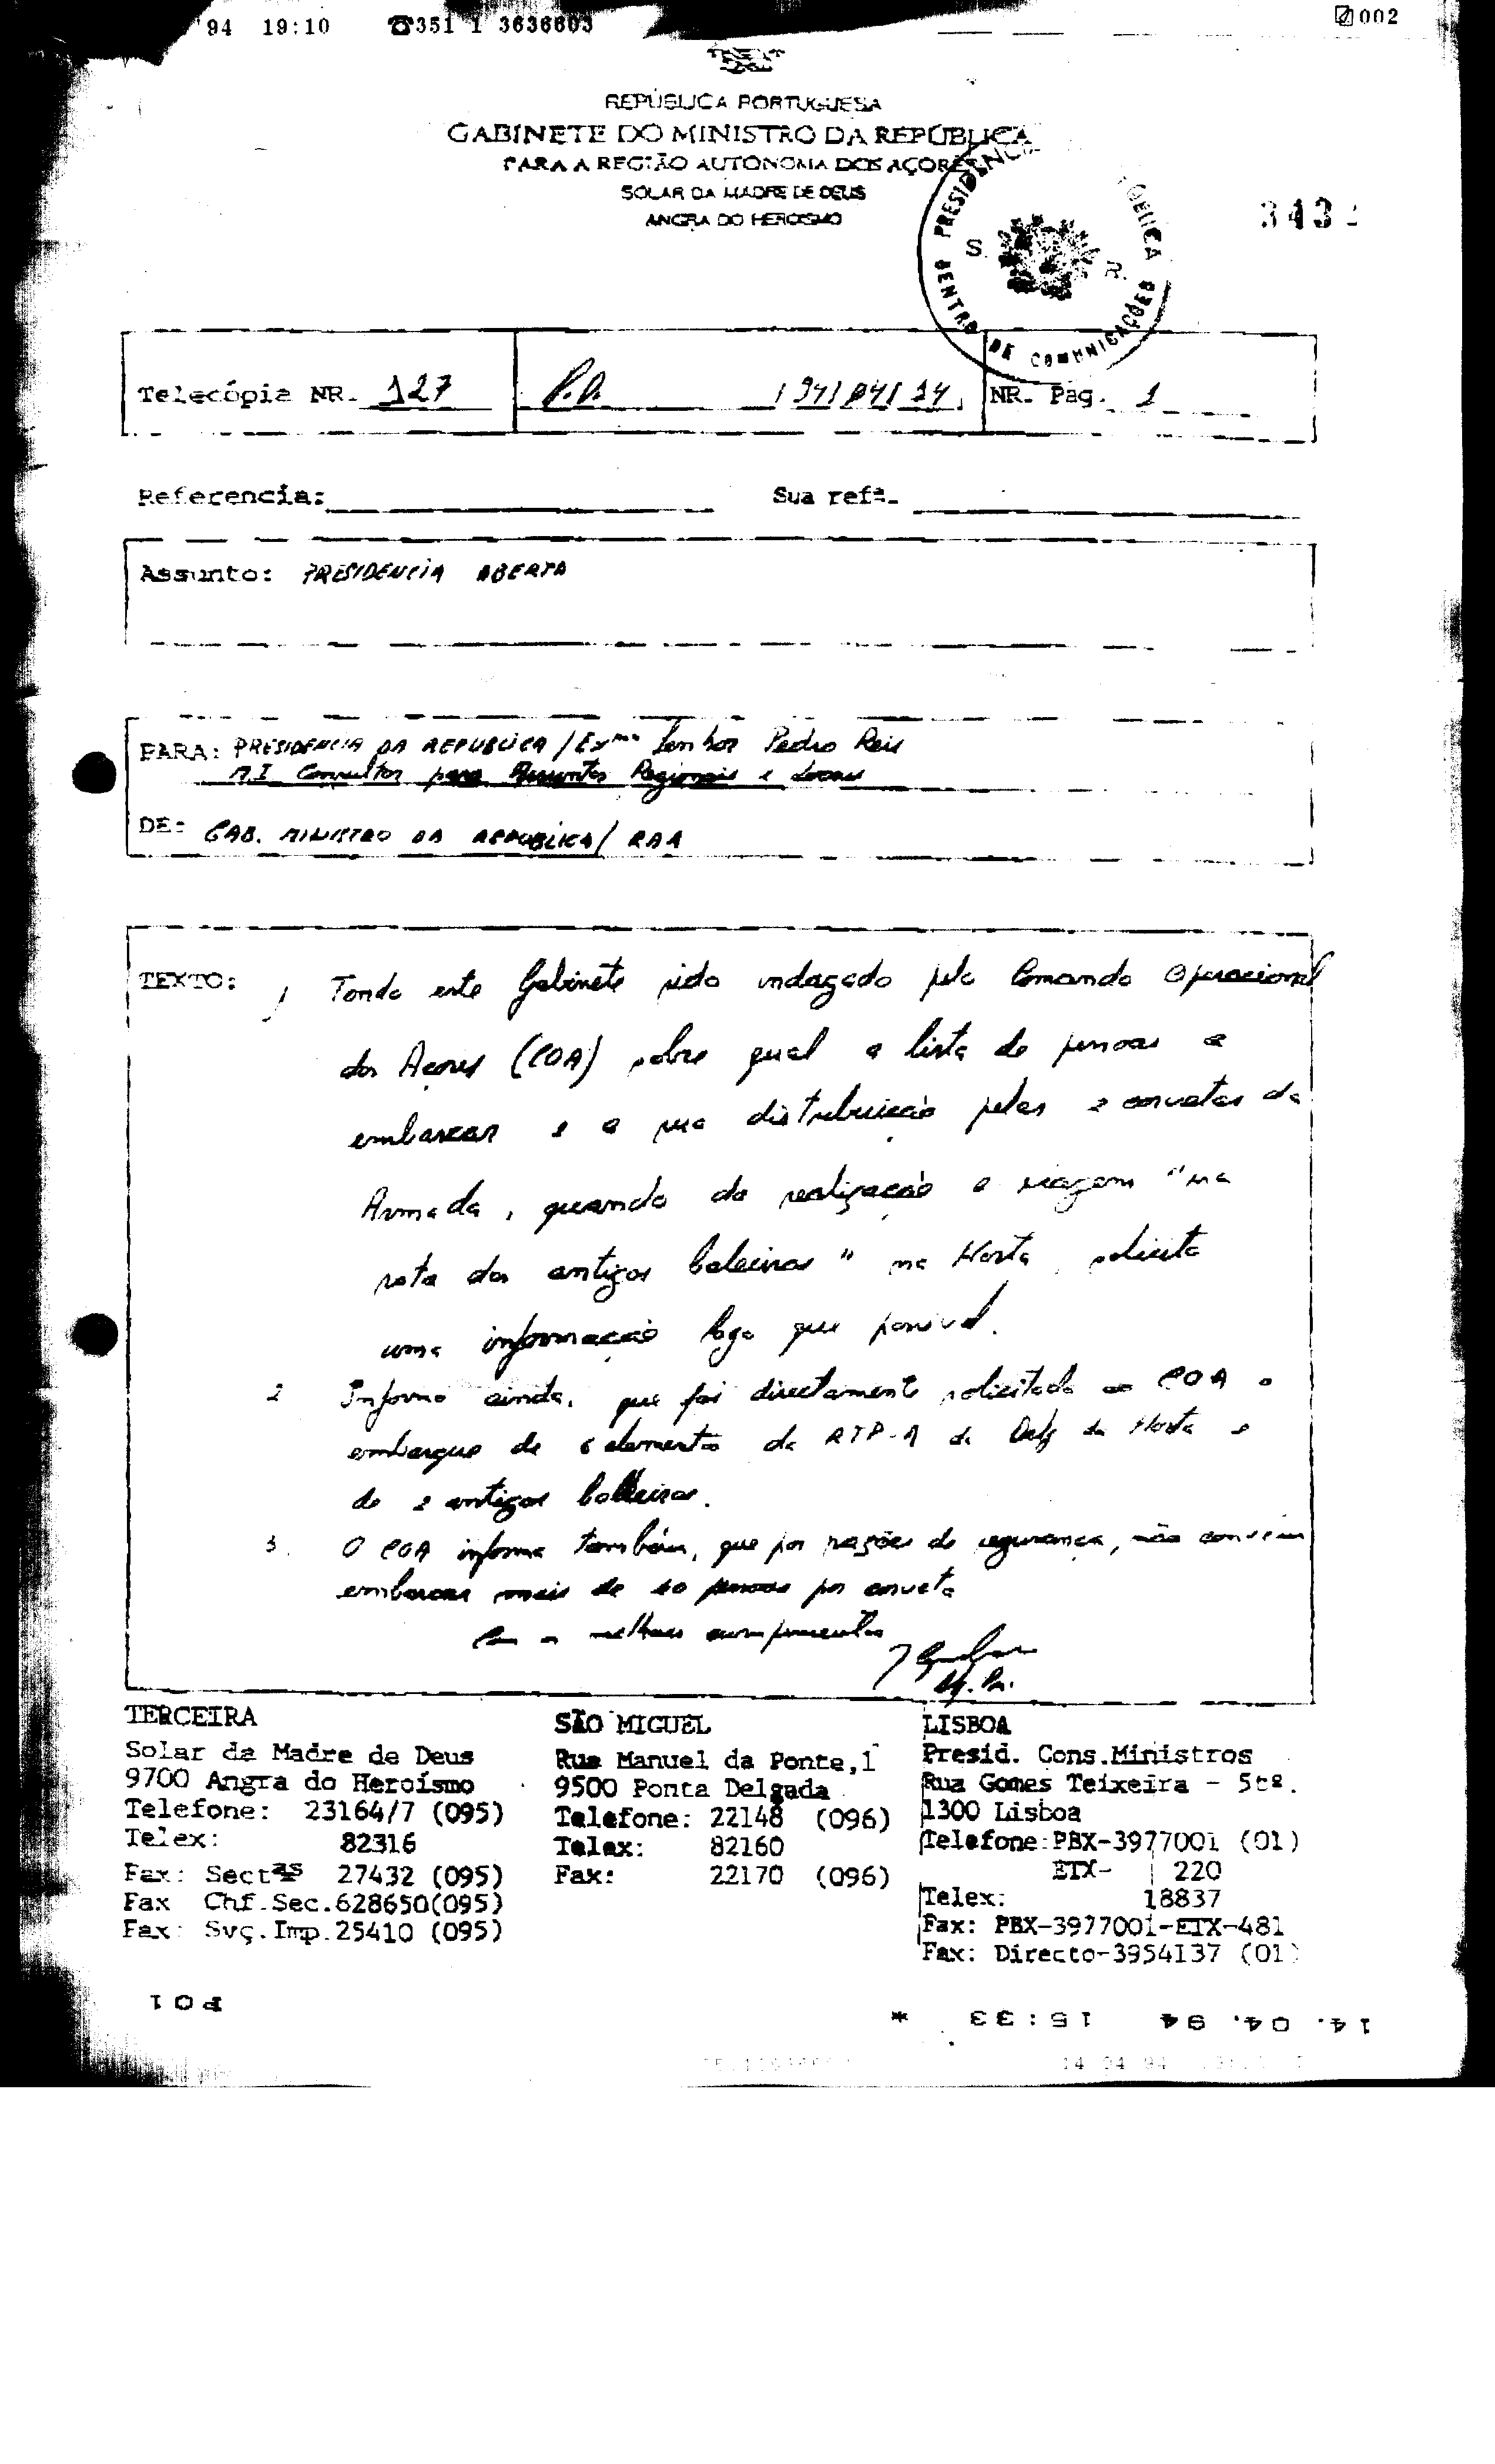 '94 19:10 ☎351 1 3636603 002
REPÚBLICA PORTUGUESA
GABINETE DO MINISTRO DA REPÚBLICA
PARA A REGIÃO AUTÓNOMA DOS AÇORES
SOLAR DA MADRE DE DEUS
ANGRA DO HEROISMO
PRESIDÊNCIA
S. R.
CENTRO DE COMUNICAÇÕES
343
Telecópia NR. 127 194/04/14 NR. Pag. 1
Referencia: Sua refª.
Assunto: PRESIDENCIA ABERTA
PARA: PRESIDENCIA DA REPUBLICA / Exmo Senhor Pedro Reis
M.I Consultor para Assuntos Regionais e Locais
DE: GAB. MINISTRO DA REPUBLICA/ RAA
TEXTO: 1 Tendo este Gabinete sido indagado pelo Comando Operacional
dos Açores (COA) sobre qual a lista de pessoas a
embarcar e a sua distribuição pelas 2 corvetas da
Armada, quando da realização a viagem "na
rota dos antigos baleeiros" na Horta, solicita
uma informação logo que possível.
2 Informo ainda, que foi directamente solicitado ao COA o
embarque de 6 elementos da RTP-A da Delg da Horta e
de 2 antigos baleeiros.
3. O COA informa também, que por razões de segurança, não convém
embarcar mais de 40 pessoas por corveta
Com os melhores cumprimentos
TERCEIRA
Solar da Madre de Deus
9700 Angra do Heroísmo
Telefone: 23164/7 (095)
Telex: 82316
Fax: Sectas 27432 (095)
Fax Chf.Sec.628650(095)
Fax: Svç.Imp.25410 (095)
SÃO MIGUEL
Rua Manuel da Ponte,1
9500 Ponta Delgada
Telefone: 22148 (096)
Telex: 82160
Fax: 22170 (096)
LISBOA
Presid. Cons.Ministros
Rua Gomes Teixeira - 5tº.
1300 Lisboa
Telefone:PBX-3977001 (01)
ETX- 220
Telex: 18837
Fax: PBX-3977001-ETX-481
Fax: Directo-3954137 (01)
P01
* 15:33 14. 04. 94
14 04 94